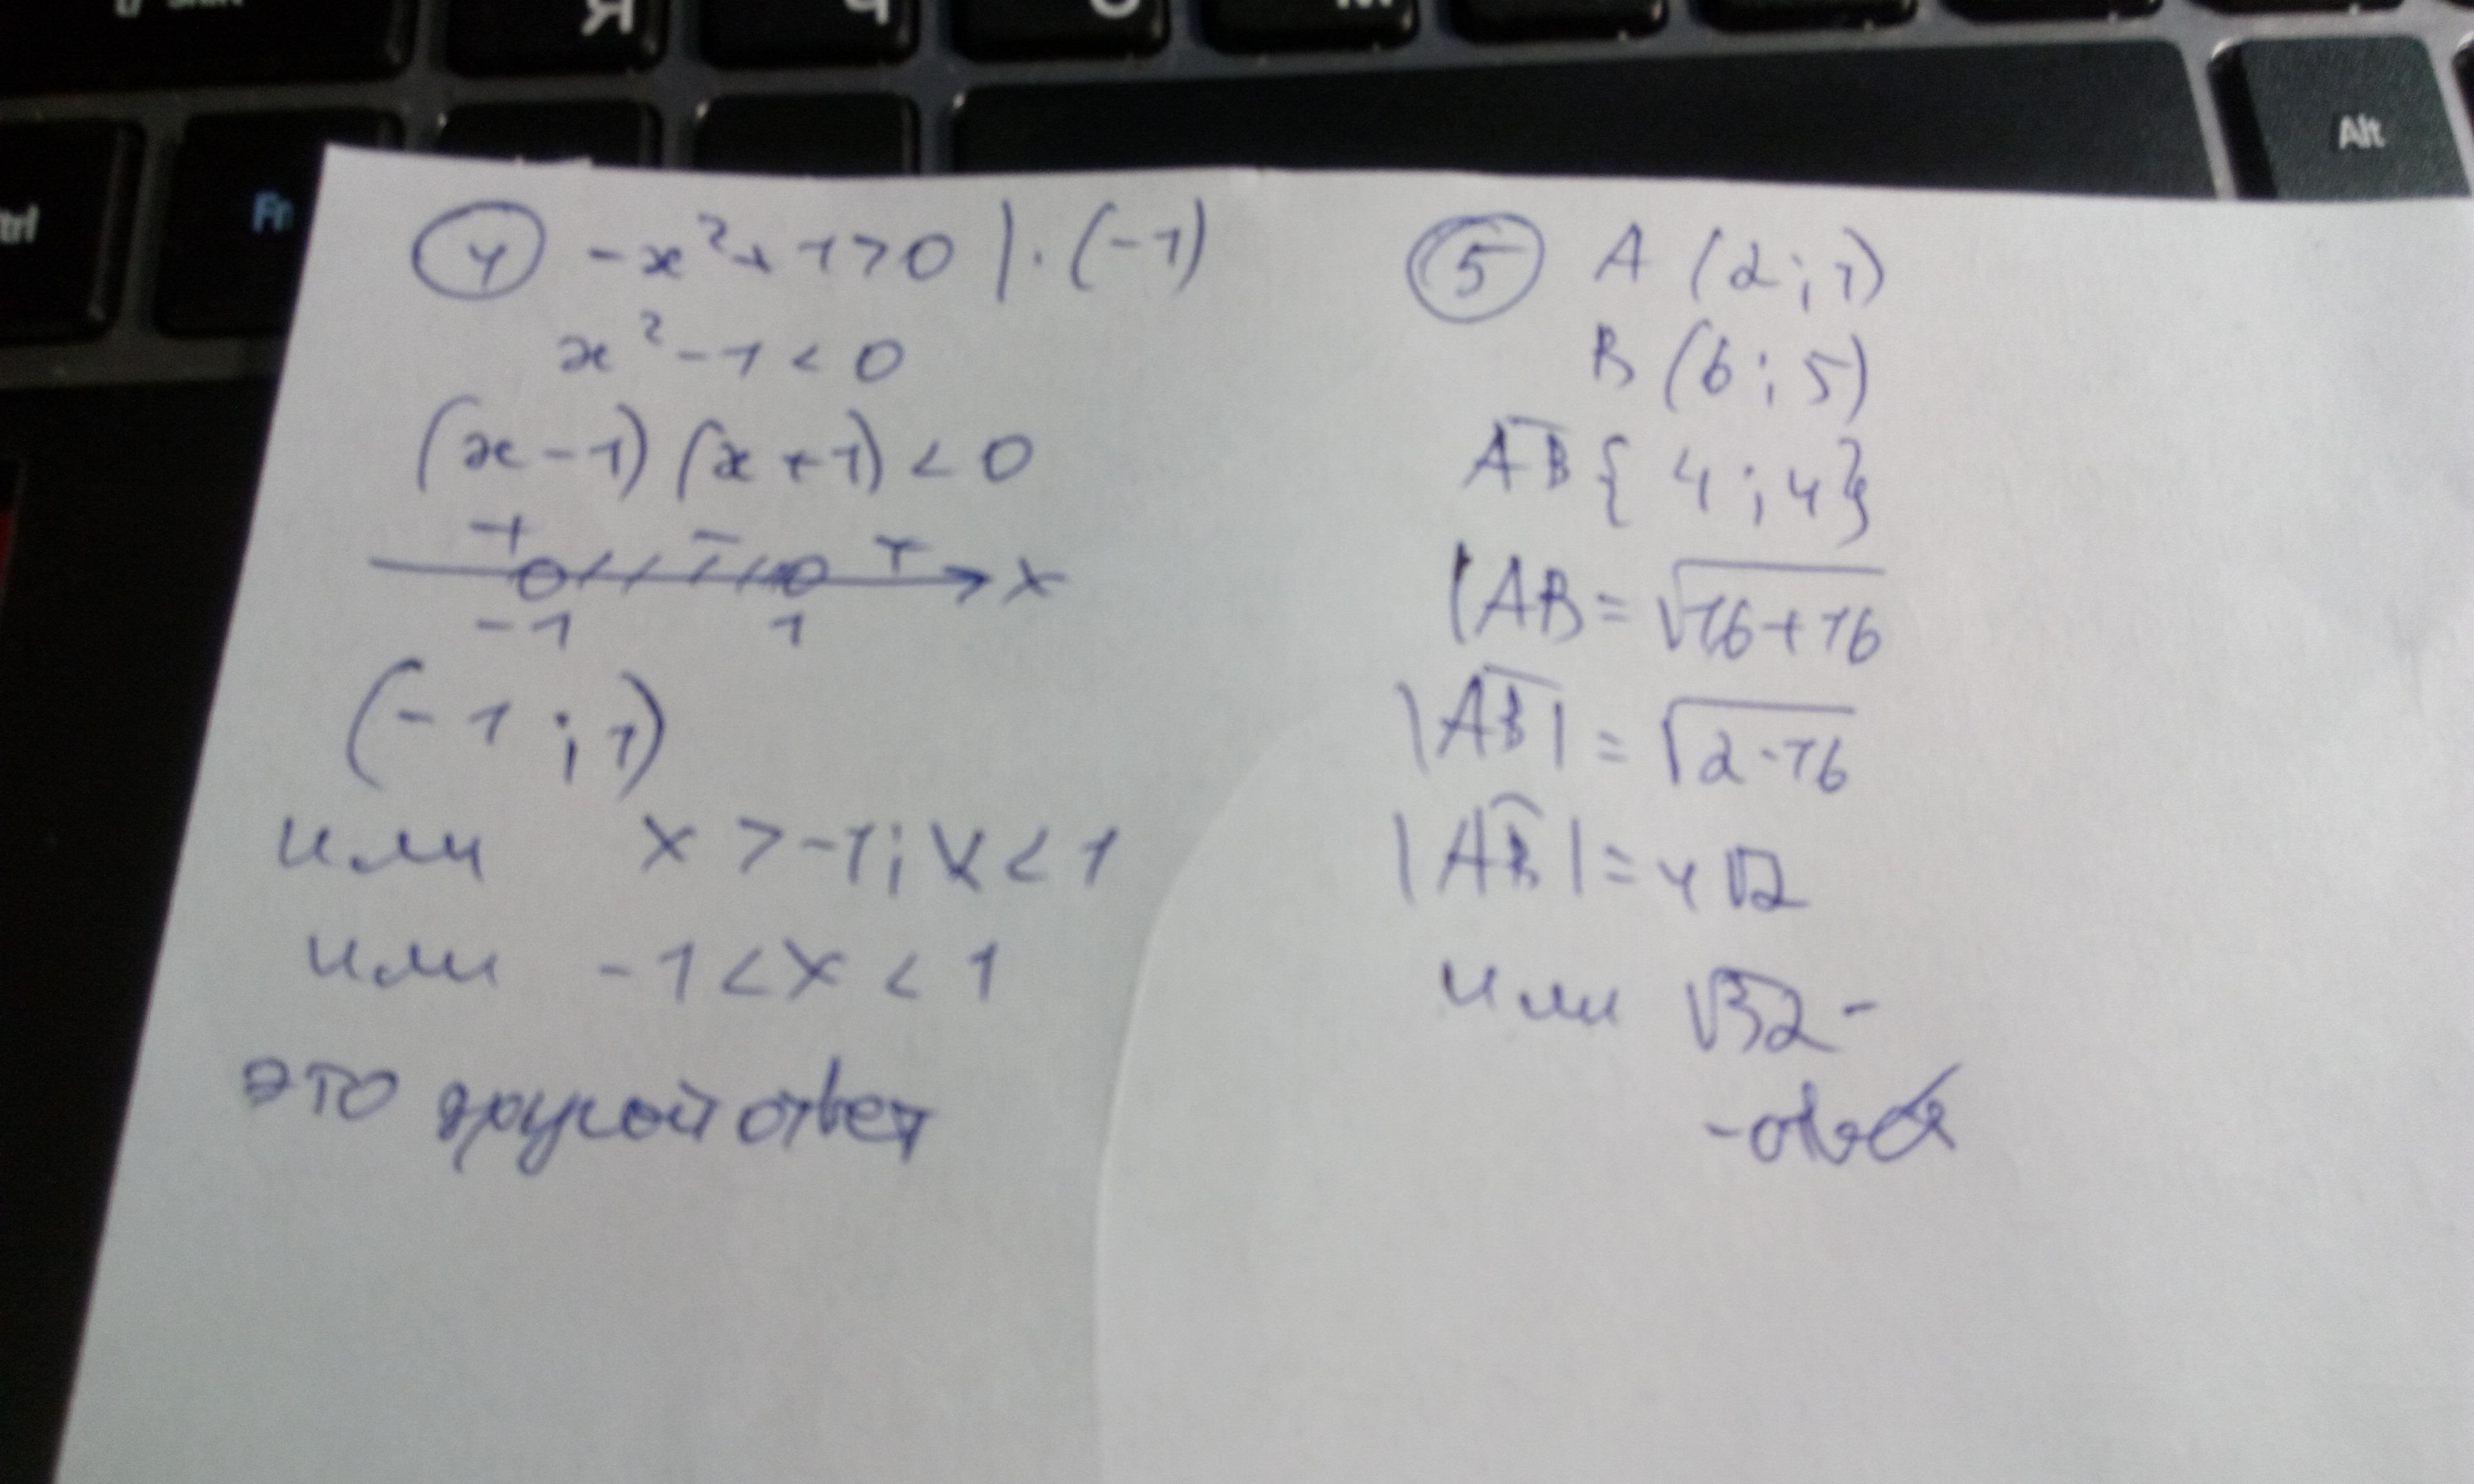 Я Ч С М
Alt
trl Fn
4 -x²+1>0 | · (-1)
x²-1<0
(x-1)(x+1)<0
+ - + x
-1 1
(-1;1)
или x>-1; x<1
или -1<x<1
это другой ответ
5 A (2;1)
B (6;5)
AB {4;4}
|AB = √16+16
|AB| = √2·16
|AB| = 4√2
или √32 -
- ответ